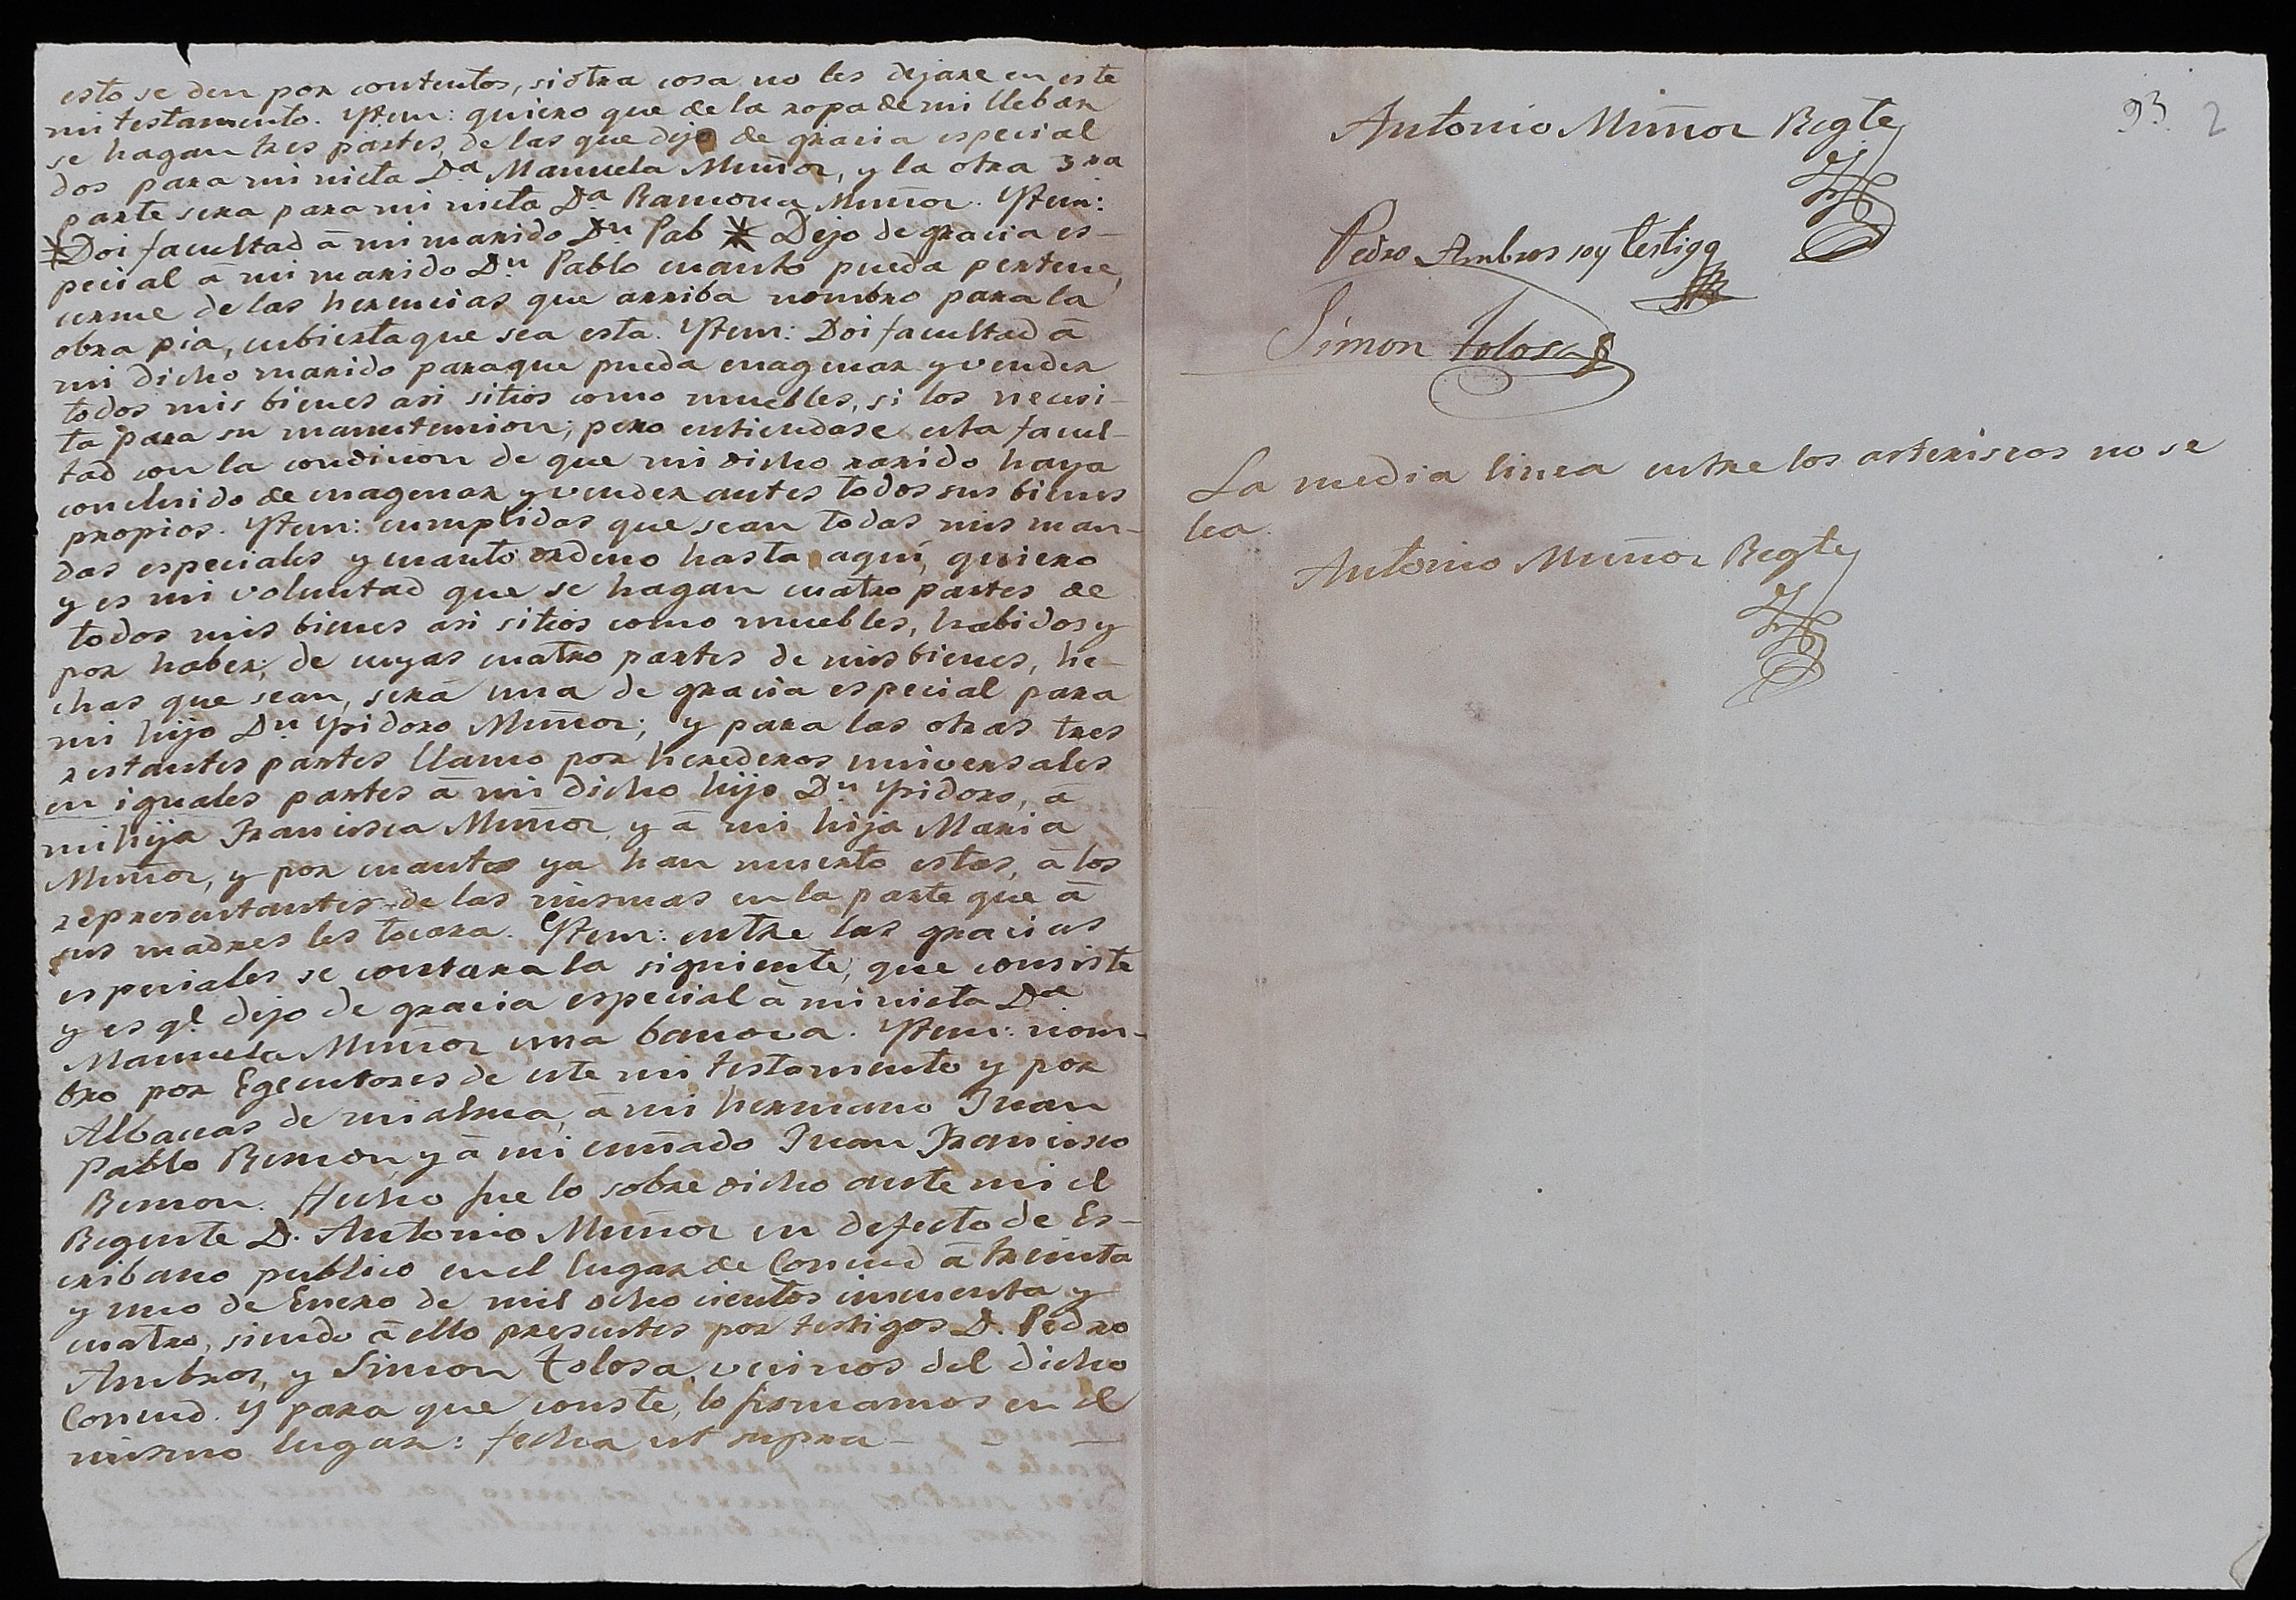 esto se den por contentos, si otra cosa no les dejare en este
mi testamento. Ytem: quiero que de la ropa de mi llebar
se hagan tres partes, de las que dejo de gracia especial
dos para mi nieta Dª Manuela Muñoz, y la otra 3ra
parte sera para mi nieta Dª Ramona Muñoz. Ytem:
*Doi facultad á mi marido Dn Pab * Dejo de gracia es-
pecial á mi marido Dn Pablo cuanto pueda pertene
cerme de las herencias que arriba nombro para la
obra pia, cubierta que sea esta. Ytem: Doi facultad á
mi dicho marido para que pueda enagenar y vender
todos mis bienes asi sitios como muebles, si los necesi-
ta para su manutencion; pero entiendase esta facul-
tad con la condicion de que mi dicho marido haya
concluido de enagenar y vender antes todos sus bienes
propios. Ytem: cumplidas que sean todas mis man-
das especiales y cuanto ordeno hasta aquí, quiero
y es mi voluntad que se hagan cuatro partes de
todos mis bienes asi sitios como muebles, habidos y
por haber; de cuyas cuatro partes de mis bienes, he-
chas que sean, será una de gracia especial para
mi hijo Dn Ysidoro Muñoz; y para las otras tres
restantes partes llamo por herederos universales
en iguales partes á mi dicho hijo Dn Ysidoro, á
mi hija Francisca Muñoz y á mi hija Maria
Muñoz, y por cuanto ya han muerto estas, á los
representantes de las mismas en la parte que á
sus madres les tocara. Ytem: entre las gracias
especiales se contara la siguiente, que consiste
y es qe. dejo de gracia especial á mi nieta Dª
Manuela Muñoz una banova. Ytem: nom-
bro por Egecutores de este mi testamento y por
Albaceas de mi alma, á mi hermano Juan
Pablo Remon y á mi cuñado Juan Francisco
Remon. Hecho fue lo sobredicho ante mi el
Regente D. Antonio Muñoz en defecto de Es-
cribano publico en el lugar de Concud á treinta
y uno de Enero de mil ocho cientos cincuenta y
cuatro, siendo á ello presentes por testigos D. Pedro
Ambros, y Simon Tolosa, vecinos del dicho
Concud. Y para que conste, lo firmamos en el
mismo lugar: fecha ut supra - - -
93. 2
Antonio Muñoz Regte
Pedro Ambros soy testigo
Simon tolosa
La media linea entre los asteriscos no se
lea.
Antonio Muñoz Regte